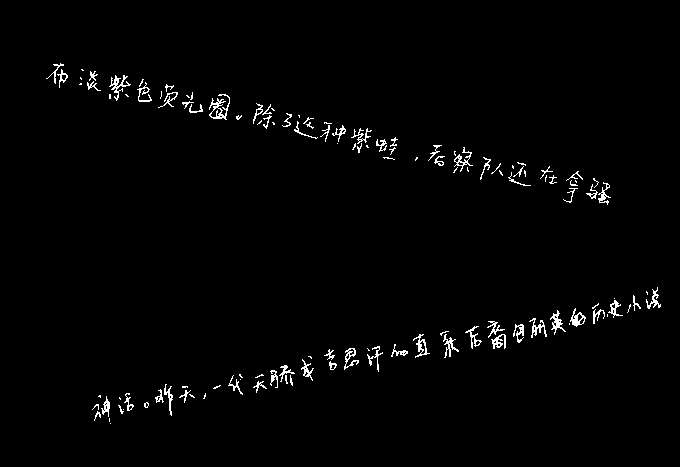 布淡紫色荧光圈。除了这种紫蛙，考察队还在拿骚
神话。昨天，一代天骄成吉思汗的直系后裔包丽英的历史小说